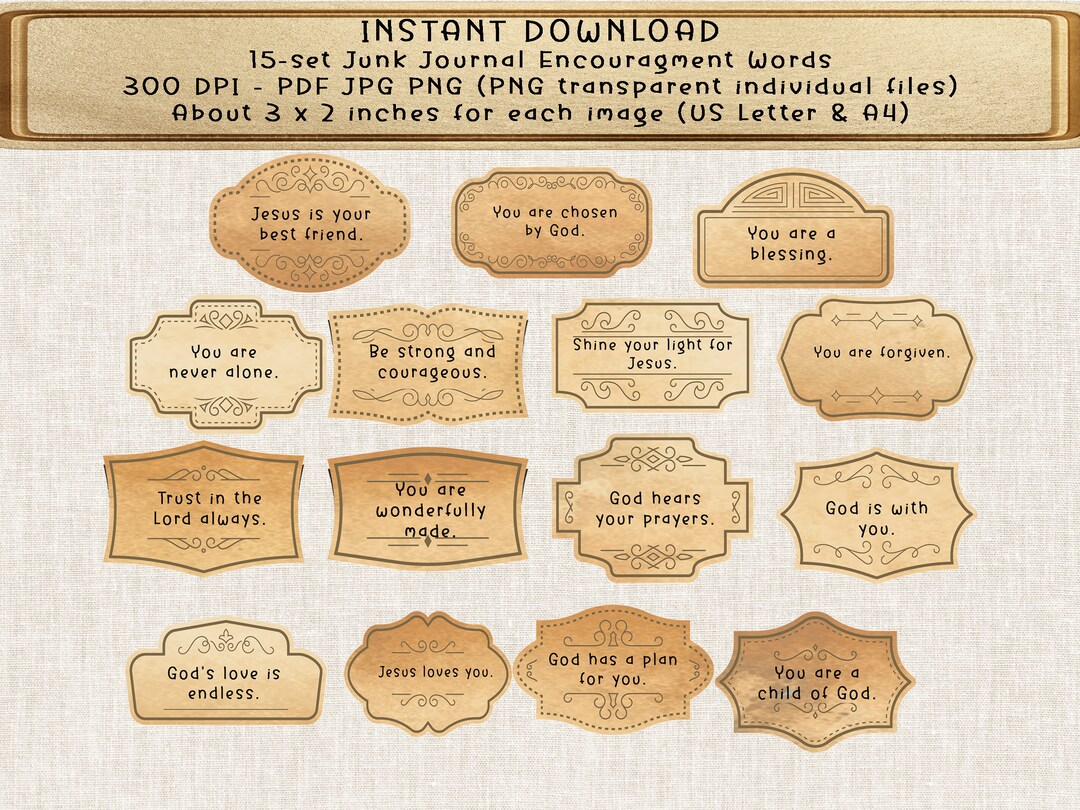 INSTANT DOWNLOAD
15-set Junk Journal Encouragment Words
300 DPI - PDF JPG PNG (PNG transparent individual files)
About 3 x 2 inches for each image (US Letter & A4)
Jesus is your
best friend.
You are chosen
by God.
You are a
blessing.
You are
never alone.
Be strong and
courageous.
Shine your light for
Jesus.
You are forgiven.
Trust in the
Lord always.
You are
wonderfully
made.
God hears
your prayers.
God is with
you.
God's love is
endless.
Jesus loves you.
God has a plan
for you.
You are a
child of God.